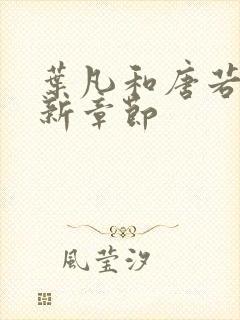 葉凡和唐若
新章節
風瑩汐